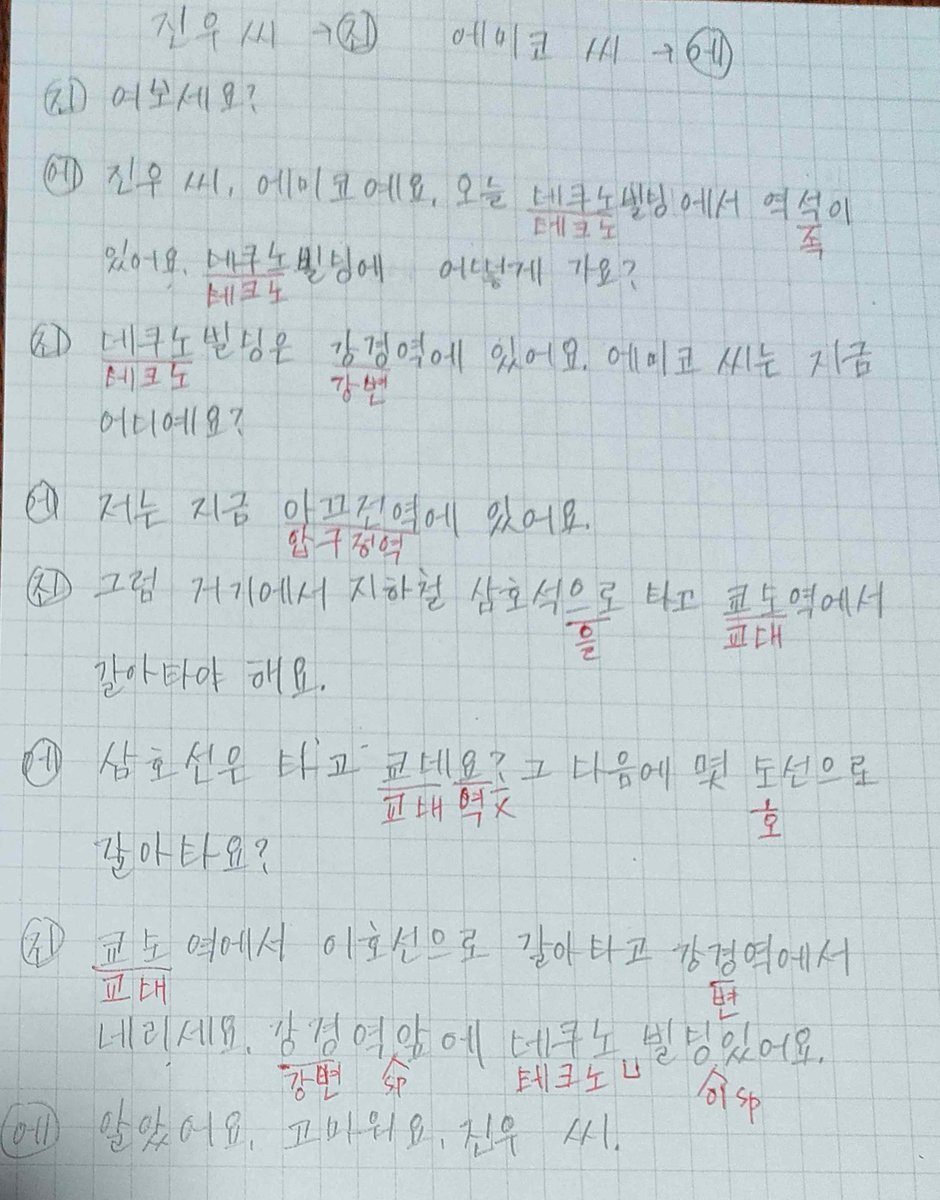 진우 씨 → 진 에미코 씨 → 에
진 여보세요?
에 진우 씨, 에미코예요, 오늘 데쿠노빌딩에서 역석이
테크노 족
있어요. 데쿠노빌딩에 어떻게 가요?
테크노
진 데쿠노빌딩은 강경역에 있어요. 에미코 씨는 지금
테크노 강변
어디예요?
에 저는 지금 아끄전역에 있어요.
압구정역
진 그럼 거기에서 지하철 삼호석으로 타고 교도역에서
을 교대
갈아타야 해요.
에 삼호선은 타고 교데요? 그 다음에 몇 도선으로
교대 역 x 호
갈아타요?
진 교도 역에서 이호선으로 갈아타고 강경역에서
교대 변
네리세요. 강경역앞에 테쿠노 빌딩있어요.
강변 sp 테크노 이 sp
에 알았어요, 고마워요, 진우 씨.